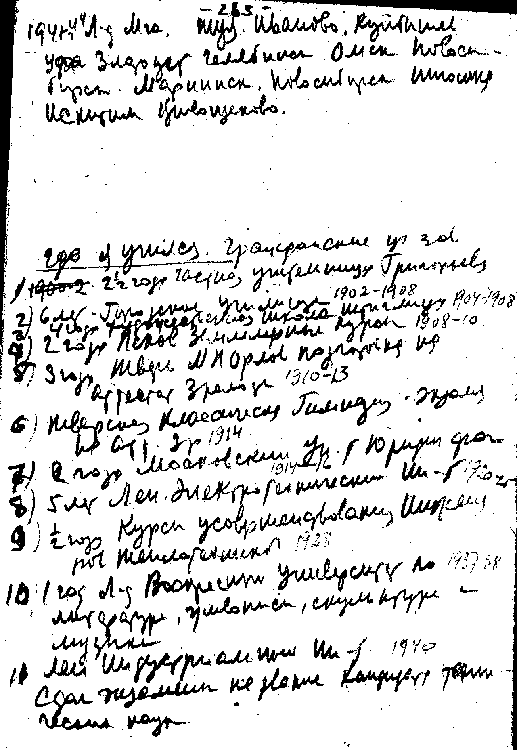 — 263 —
1941-44 Л-д Мга, Иваново, Куйбышев
Уфа Златоуст Челябинск Омск Новоси-
бирск. Мариинск, Новосибирск
Искитим Кривощеково.
где я учился. Гражданские уч. зав.
1) 1900-2 2½ года частная учительница Григорьева
2) 6 лет Городское училище 1902-1908
3) 4 года художественная школа Штиглица 1904-1908
4) 2 года Псков Землемерные курсы 1908-10
5) 3 года Тверь М И Орлов подготовка на
аттестат Зрелости 1910-13
6) Тверская Классическая Гимназия - экзамен
на атт. Зр 1914
7) 2 года Московский ун-т Юридич фак-
1914-16
8) 5 лет Лен. Электротехнический Ин-т
9) ½ года Курсы усовершенствования Инжене
ров Теплотехников 1928
10) 1 год Л-д Воскресный университет по 1937-38
литературе, живописи, скульптуре и
музыке
11 Лен Индустриальный Ин-т. 1940
Сдал экзамены на звание кандидата техни
ческих наук